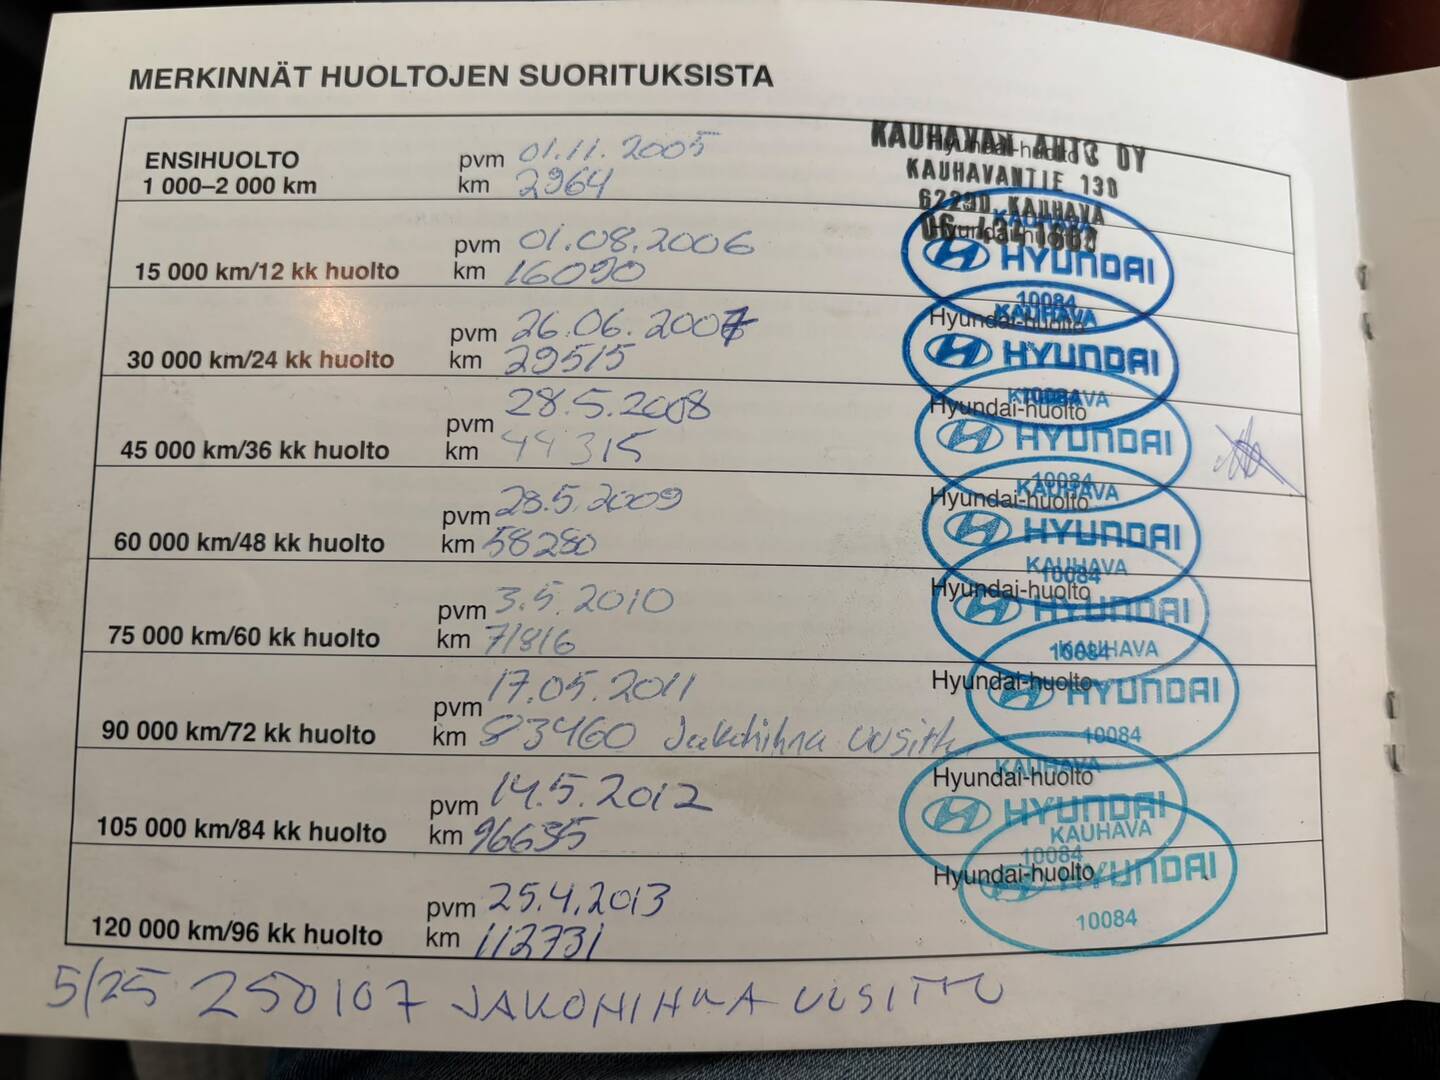 MERKINNÄT HUOLTOJEN SUORITUKSISTA
ENSIHUOLTO
1 000–2 000 km
pvm 01.11.2005
km 2964
KAUHAVAN AUTO OY
KAUHAVANTIE 130
62200 KAUHAVA
15 000 km/12 kk huolto
pvm 01.08.2006
km 16090
Hyundai-huolto
KAUHAVA
HYUNDAI
10084
30 000 km/24 kk huolto
pvm 26.06.2007
km 29515
Hyundai-huolto
KAUHAVA
HYUNDAI
10084
45 000 km/36 kk huolto
pvm 28.5.2008
km 44315
Hyundai-huolto
KAUHAVA
HYUNDAI
10084
60 000 km/48 kk huolto
pvm 28.5.2009
km 58280
Hyundai-huolto
KAUHAVA
HYUNDAI
10084
75 000 km/60 kk huolto
pvm 3.5.2010
km 71816
Hyundai-huolto
KAUHAVA
HYUNDAI
10084
90 000 km/72 kk huolto
pvm 17.05.2011
km 83460 Jakohihna uusittu
Hyundai-huolto
KAUHAVA
HYUNDAI
10084
105 000 km/84 kk huolto
pvm 14.5.2012
km 96635
Hyundai-huolto
KAUHAVA
HYUNDAI
10084
120 000 km/96 kk huolto
pvm 25.4.2013
km 112731
Hyundai-huolto
KAUHAVA
HYUNDAI
10084
5/25 250107 JAKOHIHNA UUSITTU